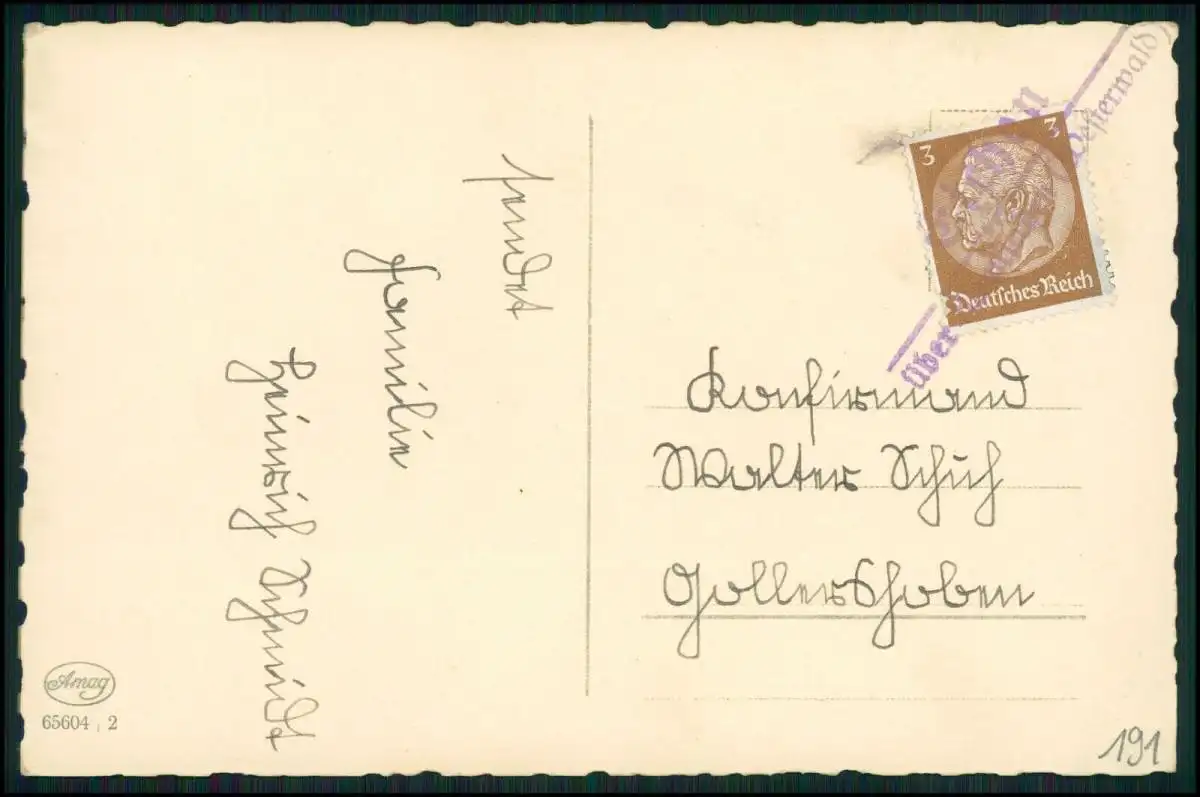 sendet
Familie
Heinrich Schmidt
3
3
Deutsches Reich
über
(Westerwald)
Konfirmand
Walter Schuh
Gollershoben
Amag
65604 , 2
191